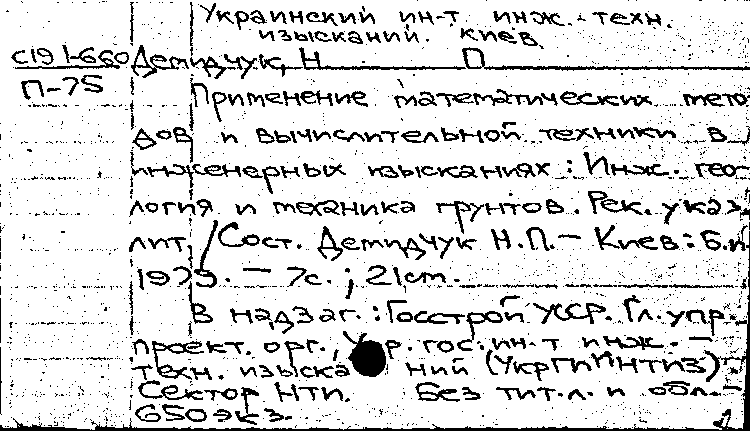 Украинский ин-т. инж.-техн.
изысканий. Киев.
С191-660 Демидчук, Н П
П-75
Применение математических мето
дов и вычислительной техники в
инженерных изысканиях: Инж. гео-
логия и механика грунтов. Рек. указ.
лит. / Сост. Демидчук Н.П. — Киев: Б.и.
1975. — 7с.; 21 cm.
В надзаг.: Госстрой УССР. Гл. упр.
проект. орг., Укр. гос. ин-т инж. —
техн. изыска ний (УкргиИНТИЗ).
Сектор НТИ. Без тит. л. и обл. —
650 экз.